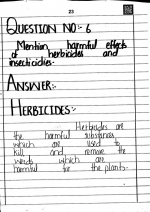 23
QUESTION NO:- 6
Mention harmful effects
of herbicides and
insecticides.
ANSWER:-
HERBICIDES:-
Herbicides are
the harmful substances
which are used to
kill and remove the
weeds which are
harmful for the plants.